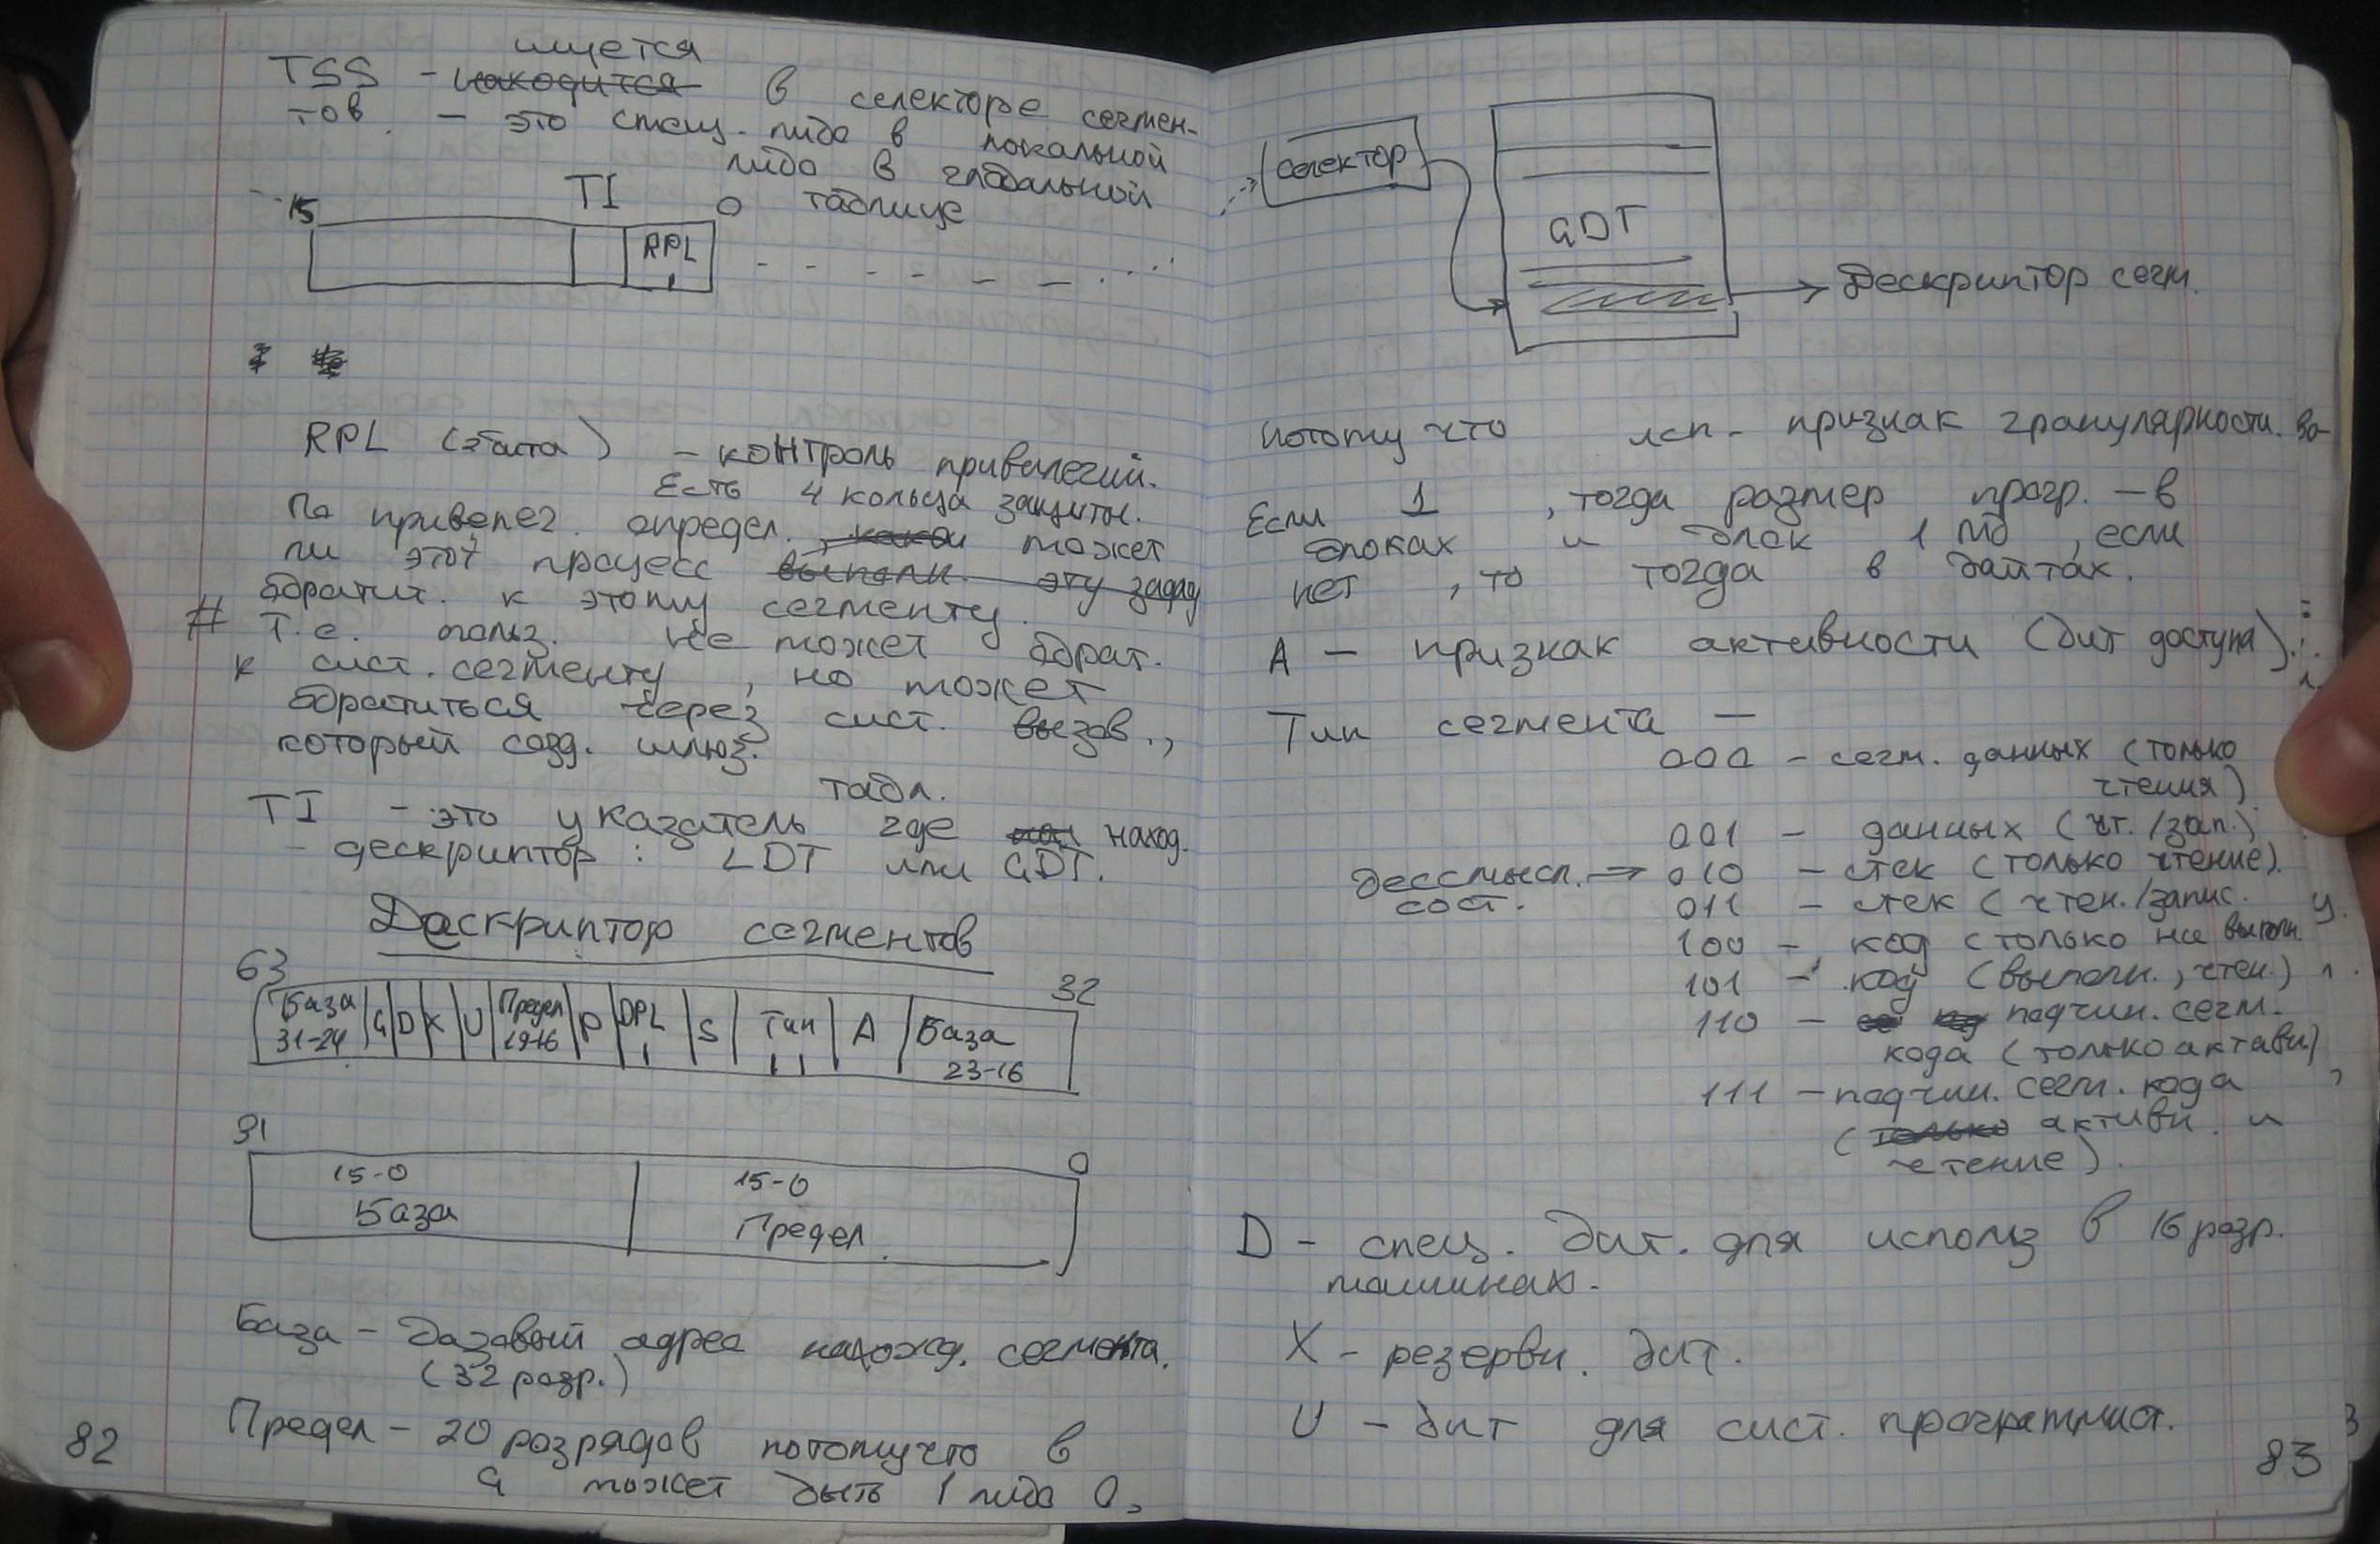 ищется
TSS - находится в селекторе сегмен-
тов - это спец. либо в локальной
либо в глобальной
таблице
15 TI 0
RPL
RPL (2бита) - контроль привилегий.
Есть 4 кольца защиты.
По привелег. определ., может
ли этот процесс выполн. эту задачу
обратит. к этому сегменту.
# Т.е. польз. не может обрат.
к сист. сегменту, но может
обратиться через сист. вызов.,
который созд. шлюз.
табл.
TI - это указатель где наход.
дескриптор: LDT или GDT.
Дескриптор сегментов
63 32
База 31-24 G D X U Предел 19-16 P DPL S Тип A База 23-16
31 0
15-0 15-0
База Предел
База - базовый адрес нахожд. сегмента.
(32 разр.)
Предел - 20 разрядов потомучто в
G может быть 1 либо 0,
82
селектор
GDT
Дескриптор сегм.
потому что исп - признак гранулярности.
Если 1, тогда размер прогр. - в
блоках и блок 1 Мб, если
нет, то тогда в байтах.
A - признак активности (бит доступа)
Тип сегмента -
000 - сегм. данных (только
чтения)
001 - данных (чт./зап.)
бессмысл. → 010 - стек (только чтение).
сост. 011 - стек (чтен./запис.
100 - код (только на выполн.
101 - код (выполн., чтен.)
110 - подчин. сегм.
кода (только активн)
111 - подчин. сегм. кода
(только активн. и
чтение).
D - спец. бит. для использ в 16 разр.
машинах.
X - резервн. бит.
U - бит для сист. программист.
83